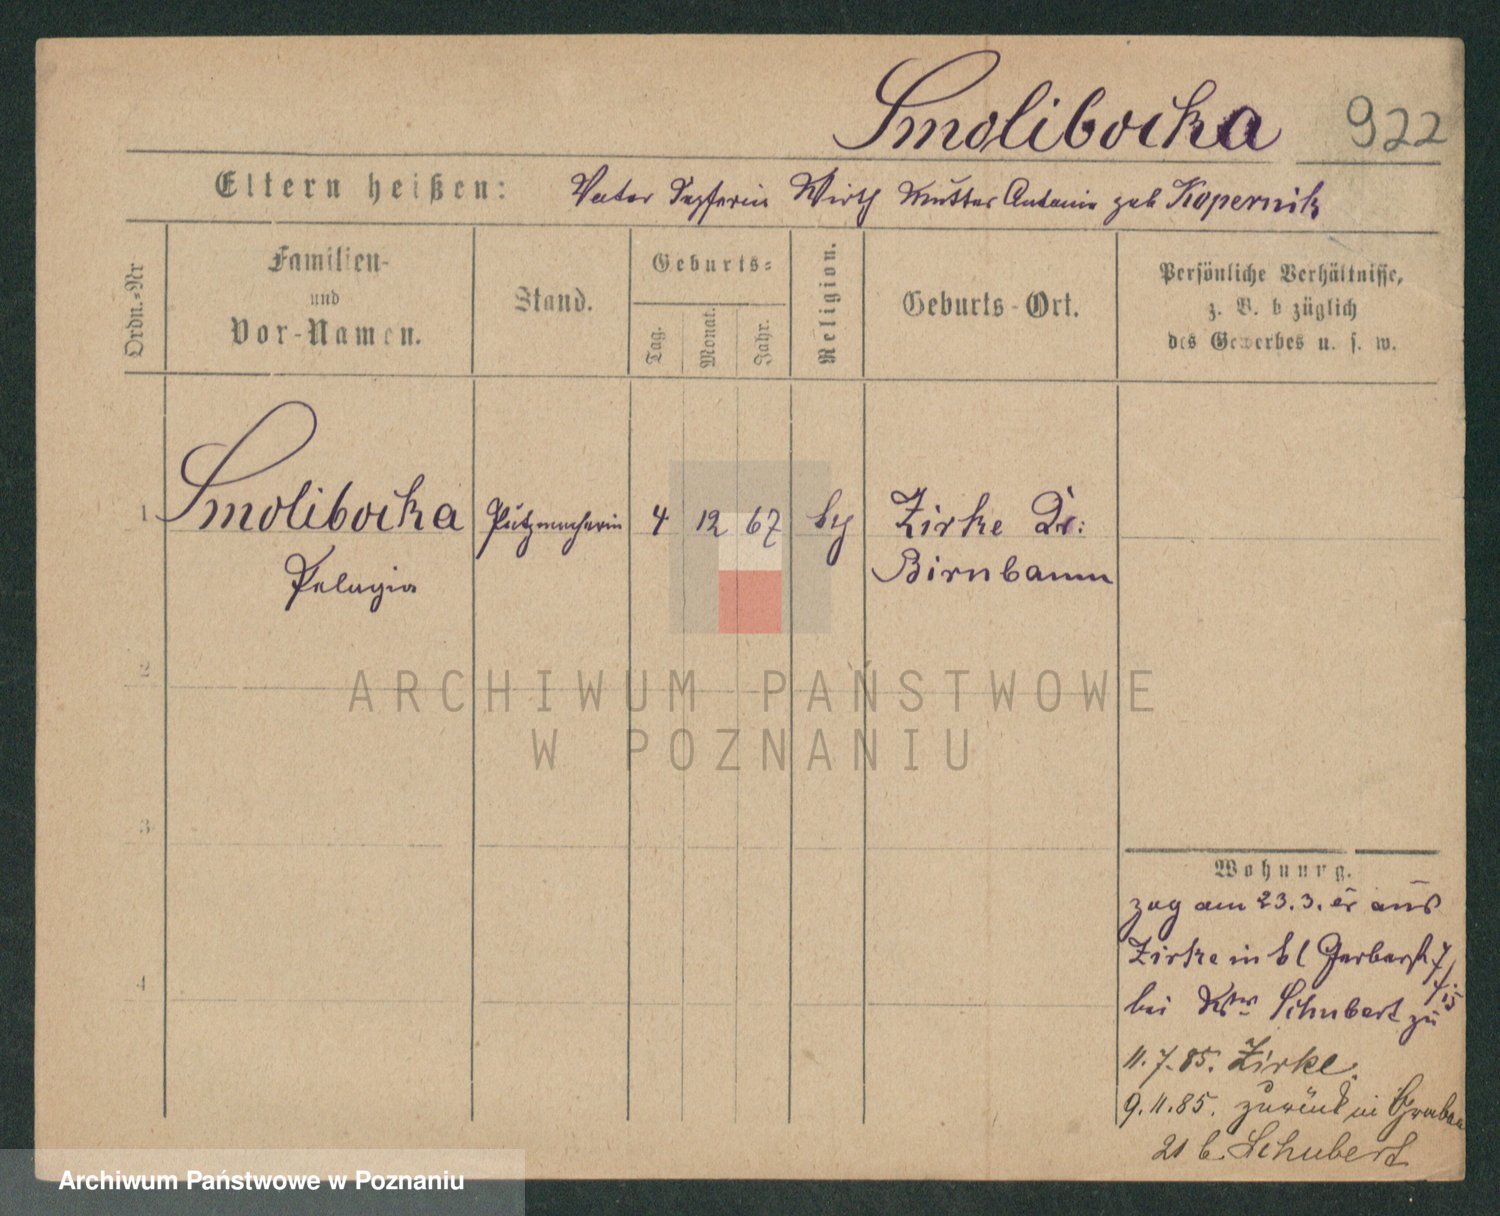 Smolibocka 922
Eltern heißen: Vater Wirth Mutter Antonie geb Kopernik
Ordn.=Nr
Familien-
und
Vor-Namen.
Stand.
Geburts=
Tag.
Monat.
Jahr.
Religion.
Geburts-Ort.
Persönliche Verhältnisse,
z. B. bezüglich
des Gewerbes u. s. w.
1 Smolibocka Putzmacherin 4 12 67 Zirke Kr:
Pelagia Birnbaum
2
ARCHIWUM PAŃSTWOWE
W POZNANIU
3
Wohnung.
zog am 23.3. er aus
Zirke in kl Gerberst 7
4
bei Schubert zu
11.7.85. Zirke.
9.11.85. zurück in Graben
21 b. Schubert
Archiwum Państwowe w Poznaniu